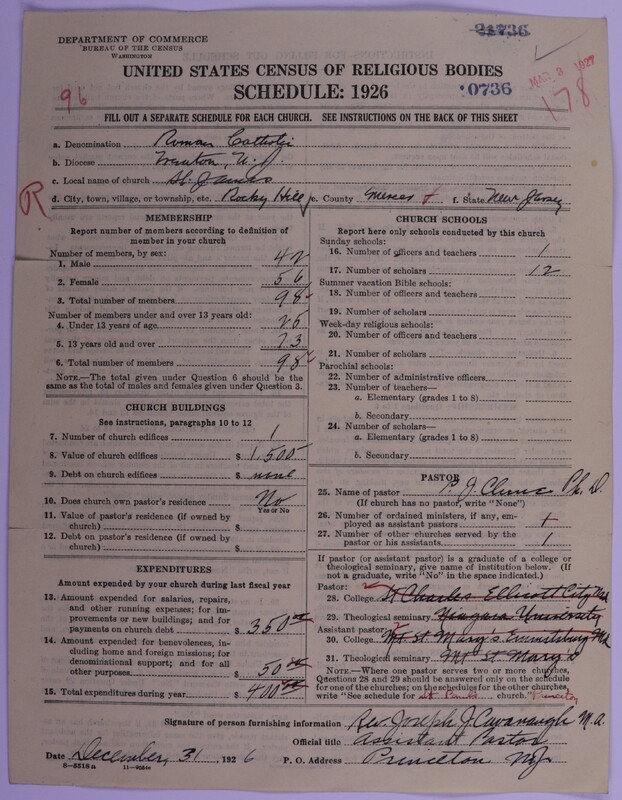 21736
DEPARTMENT OF COMMERCE
BUREAU OF THE CENSUS
WASHINGTON
UNITED STATES CENSUS OF RELIGIOUS BODIES
SCHEDULE: 1926
MAR 3 1927
96
0736
178
FILL OUT A SEPARATE SCHEDULE FOR EACH CHURCH. SEE INSTRUCTIONS ON THE BACK OF THIS SHEET
a. Denomination Roman Catholic
b. Diocese Trenton, N.J.
c. Local name of church St. James
R
d. City, town, village, or township, etc. Rocky Hill e. County Mercer f. State New Jersey
MEMBERSHIP
Report number of members according to definition of member in your church
Number of members, by sex:
1. Male 42
2. Female 56
3. Total number of members 98
Number of members under and over 13 years old:
4. Under 13 years of age 25
5. 13 years old and over 73
6. Total number of members 98
NOTE.—The total given under Question 6 should be the
same as the total of males and females given under Question 3.
CHURCH BUILDINGS
See instructions, paragraphs 10 to 12
7. Number of church edifices 1
8. Value of church edifices $ 1,500
9. Debt on church edifices $ none
10. Does church own pastor's residence No
Yes or No
11. Value of pastor's residence (if owned by
church) $
12. Debt on pastor's residence (if owned by
church) $
EXPENDITURES
Amount expended by your church during last fiscal year
13. Amount expended for salaries, repairs,
and other running expenses; for
improvements or new buildings; and for
payments on church debt $ 350.00
14. Amount expended for benevolences,
including home and foreign missions; for
denominational support; and for all
other purposes $ 50.00
15. Total expenditures during year $ 400.00
CHURCH SCHOOLS
Report here only schools conducted by this church
Sunday schools:
16. Number of officers and teachers 1
17. Number of scholars 12
Summer vacation Bible schools:
18. Number of officers and teachers
19. Number of scholars
Week-day religious schools:
20. Number of officers and teachers
21. Number of scholars
Parochial schools:
22. Number of administrative officers
23. Number of teachers—
a. Elementary (grades 1 to 8)
b. Secondary
24. Number of scholars—
a. Elementary (grades 1 to 8)
b. Secondary
PASTOR
25. Name of pastor P. J. Clune Ph. D.
(If church has no pastor, write "None")
26. Number of ordained ministers, if any, em-
ployed as assistant pastors 1
27. Number of other churches served by the
pastor or his assistants 1
If pastor (or assistant pastor) is a graduate of a college or
theological seminary, give name of institution below. (If
not a graduate, write "No" in the space indicated.)
Pastor:
28. College St Charles Ellicott City Md
29. Theological seminary Niagara University
Assistant pastor:
30. College Mt St Mary's Emmitsburg Md
31. Theological seminary Mt St Mary's
NOTE.—Where one pastor serves two or more churches,
Questions 28 and 29 should be answered only on the schedule
for one of the churches; on the schedules for the other churches
write "See schedule for St. Pauls church." Princeton
Signature of person furnishing information Rev. Joseph J. Cavanaugh M. A.
Official title Assistant Pastor
Date December 31, 1926 P. O. Address Princeton N.J.
8—5518a 11—9034c